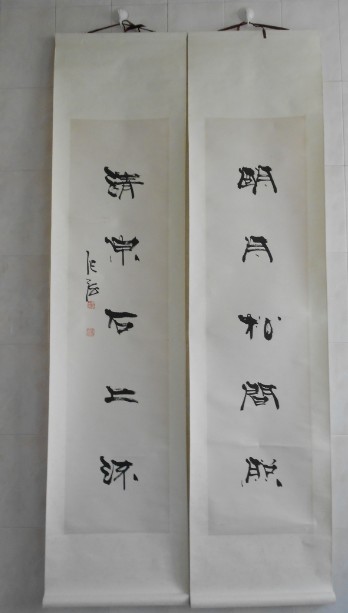 明月松間照
清泉石上流
張海